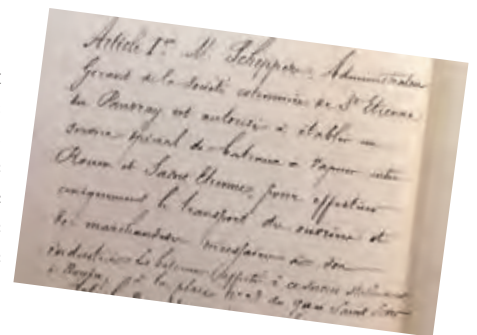 Article 1er M. Scheppers, Administrateur
Gérant de la Société cotonnière de St Etienne
du Rouvray est autorisé à établir un
service spécial de bateaux à vapeur entre
Rouen et Saint Etienne, pour effectuer
uniquement le transport du ouvriers et
des marchandises nécessaires à son
industrie. Le bateau affecté à ce service
à Rouen, à la place no 2 du quai Saint